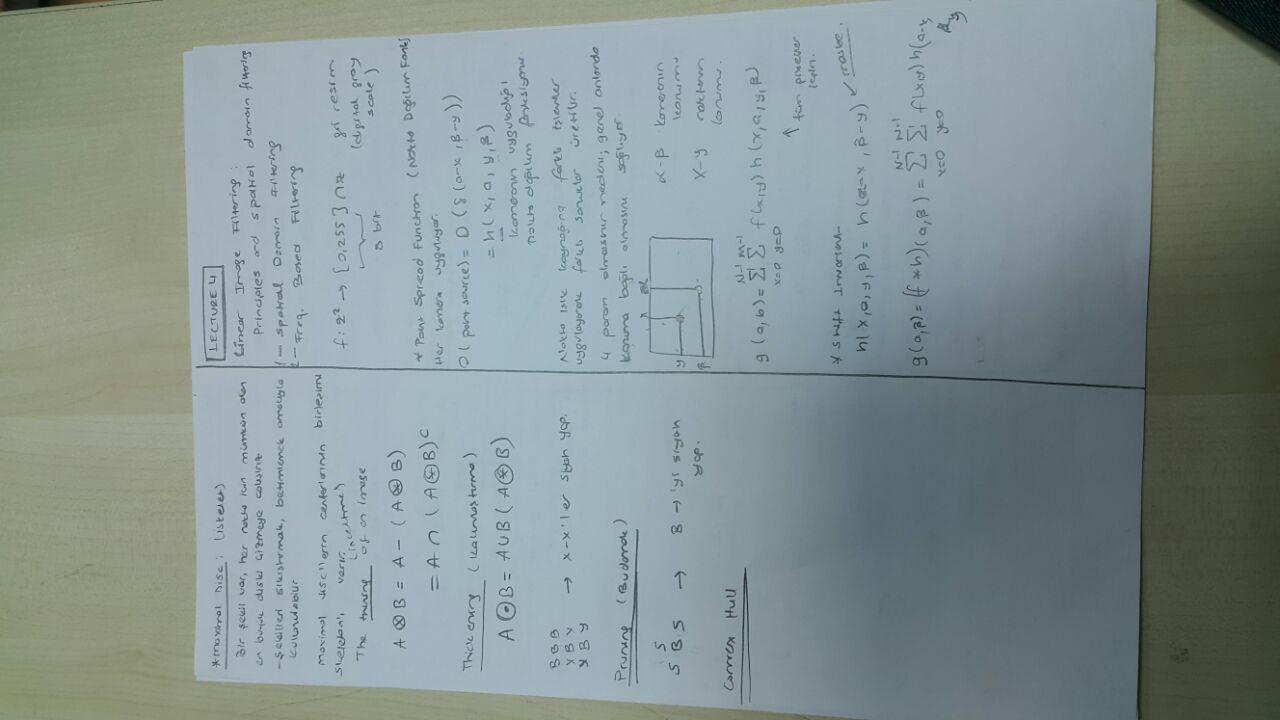 * Maximal Disc: (iskelet)
Bir şekil var, her nokta için mümkün olan
en büyük diski çizmeye çalışırız
- Şekilleri sıkıştırmak, betimlemek amacıyla
kullanılabilir
Maximal disc'lerin centerlarının birleşimi
skeleton'ı verir.
(inceltme)
The thinning of an image
A ⊗ B = A - (A ⊛ B)
= A ∩ (A ⊛ B)ᶜ
Thickening (Kalınlaştırma)
A ⊙ B = A ∪ B (A ⊛ B)
B B B
X B X → x-x'ler siyah yap.
X B Y
Pruning (Budamak)
S
S B S → B → 'yi siyah
yap.
Convex Hull
LECTURE 4
Linear Image Filtering:
Principles and spatial domain filtering
1 - Spatial Domain Filtering
2 - Freq. Based Filtering
f: z² → [0,255] ∩ z gri resim
(digital gray
scale)
8 bit
* Point Spread Function (Nokta Dağılım Fonks)
Her kamera uyguluyor.
O(point source) = D(δ(α-x, β-y))
= h(x, α, y, β)
kameranın uyguladığı
nokta dağılım fonksiyonu.
Nokta ışık kaynağına farklı işlemler
uygulayarak farklı sonuçlar üretilir.
4 param olmasının nedeni; genel anlamda
konuma bağlı olmasını sağlıyor
x α
y
β
α-β kameranın
konumu
x-y noktanın
konumu.
g(a,b) = Σ(x=0, N-1) Σ(y=0, M-1) f(x,y) h(x,α,y,β)
↑ tüm pikseller
için.
* Shift Invariant
h(x,α,y,β) = h(α-x, β-y) ↙ maske.
g(α,β) = (f * h)(α,β) = Σ(x=0, N-1) Σ(y=0, N-1) f(x,y) h(α-x,
β-y)